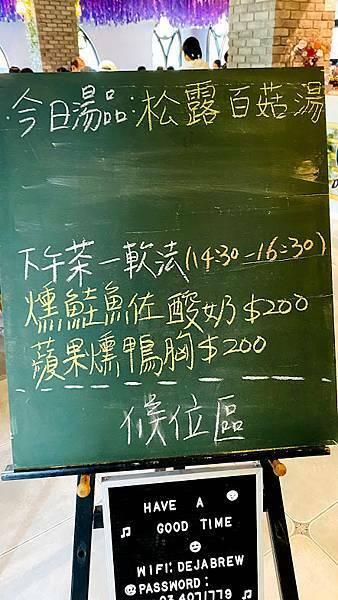 今日湯品:松露百菇湯
下午茶一軟法(14:30-16:30)
燻鮭魚佐酸奶$200
蘋果燻鴨胸$200
候位區
HAVE A
GOOD TIME
WIFI: DEJABREW
PASSWORD:
03 4071779